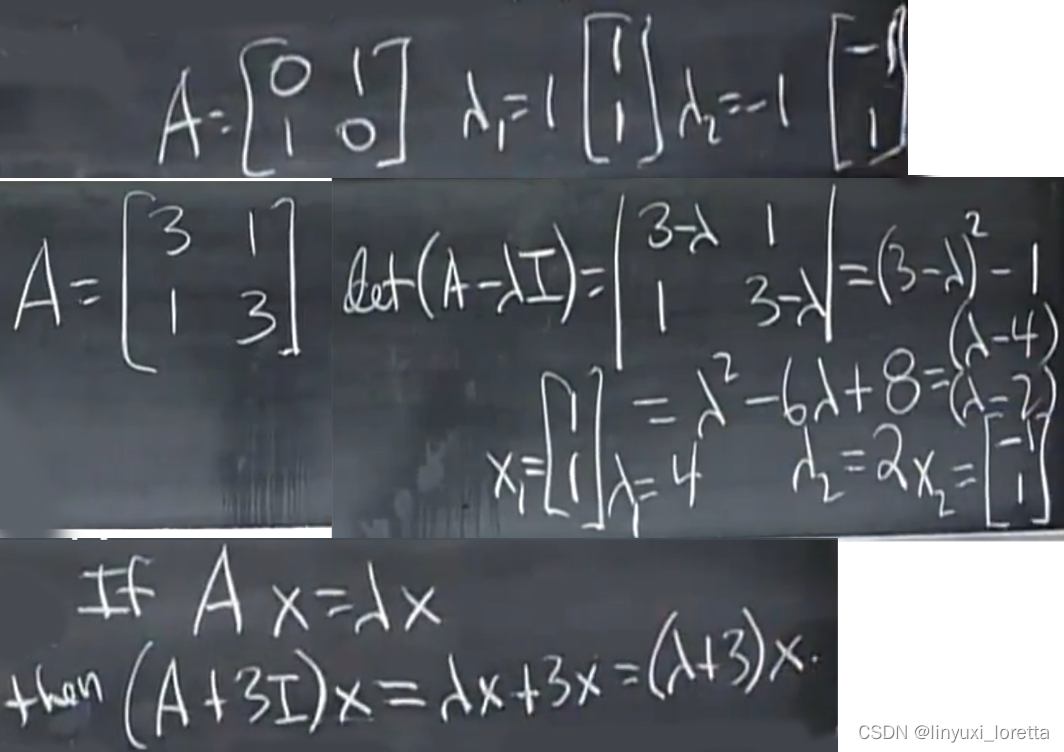 A = [0 1; 1 0] λ₁ = 1 [1; 1] λ₂ = -1 [-1; 1]
A = [3 1; 1 3]
det(A - λI) = |3-λ 1; 1 3-λ| = (3-λ)² - 1
= λ² - 6λ + 8 = (λ-4)(λ-2)
x₁ = [1; 1] λ₁ = 4 λ₂ = 2 x₂ = [-1; 1]
If A x = λx
then (A + 3I)x = λx + 3x = (λ+3)x.
CSDN @linyuxi_loretta